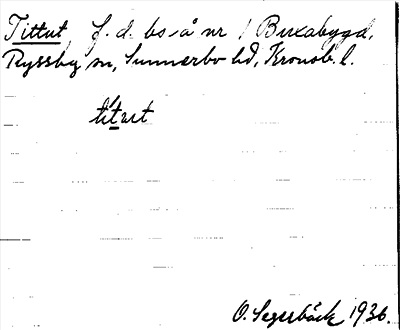 Tittut, f.d. bs å nr 1 Buxabygd,
Ryssby sn, Sunnerbo hd, Kronob. l.
O. Segerbäck 1936.